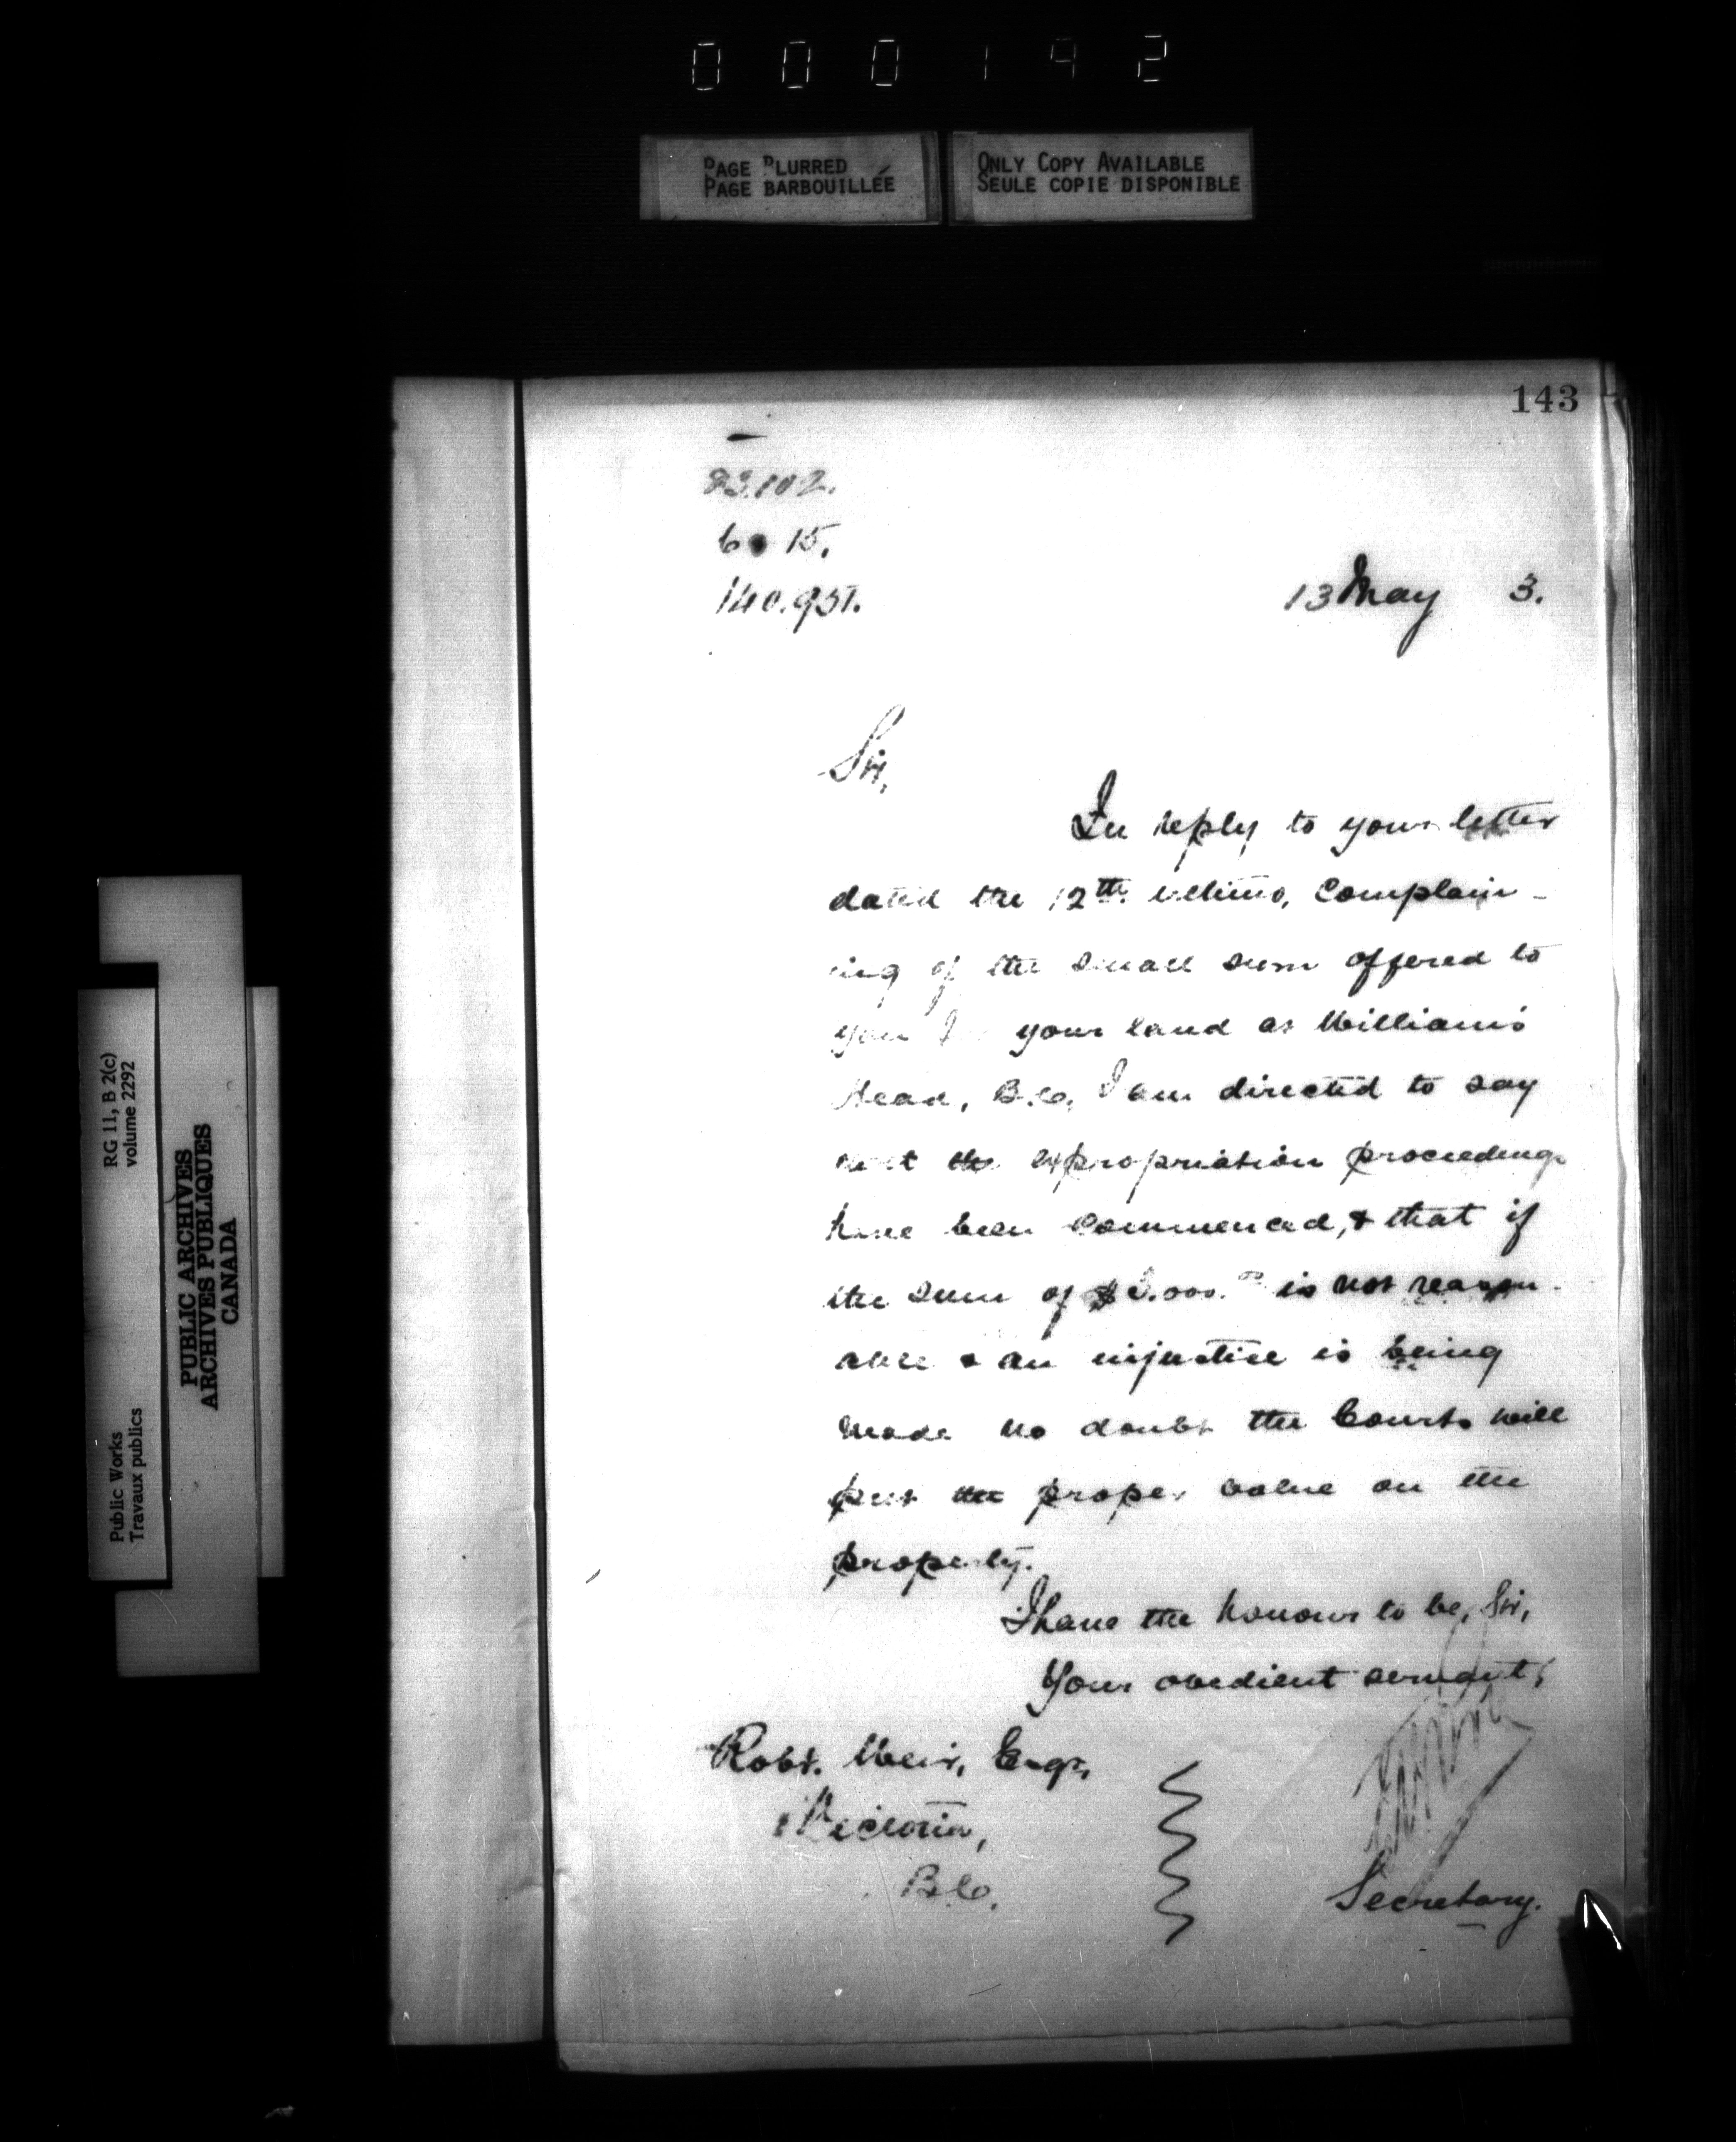 000142
PAGE BLURRED
PAGE BARBOUILLÉE
ONLY COPY AVAILABLE
SEULE COPIE DISPONIBLE
143
140.951.
13 May 3.
Sir,
In reply to your letter
dated the 12th ultimo, Complain-
ing of the small sum offered to
you your land as William's
Head, B.C. I am directed to say
that the expropriation proceedings
have been commenced, & that if
the sum of is not reason-
able & an injustice is being
made no doubt the Courts will
put the proper value on the
property.
I have the honour to be, Sir,
Your obedient servant,
Robt. Weir, Esqr,
Victoria,
B.C.
Secretary.
RG 11, B 2(c)
volume 2292
Public Works
Travaux publics
PUBLIC ARCHIVES
ARCHIVES PUBLIQUES
CANADA